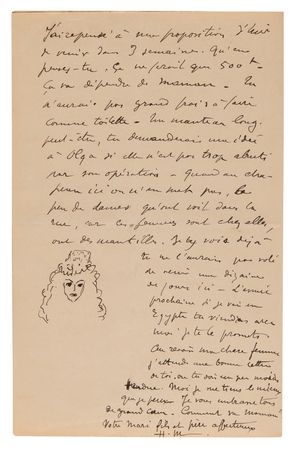 J'ai repensé à une proposition d'hier
de venir dans 3 semaines. Qu'en
penses-tu. Ça ne serait que 500 f
Ça va dépendre de maman. Tu
n'aurais pas grand frais à faire
comme toilette. Un manteau long
peut-être, tu demanderais une idée
à Olga si elle n'est pas trop abrutie
par son opération. quand au cha-
peau ici on n'en met pas, le
peu de dames qu'on voit dans la
rue, car les femmes sont chez elles,
ont des mantilles. Je t'y vois déjà
tu ne l'aurais pas volé
de venir une dizaine
de jours ici - L'année
prochaine si je vais en
Egypte tu viendras avec
moi. je te le promets.
Au revoir ma chère femme
j'attends une bonne lettre
de toi, on doit en peu
tendre. Moi je me tiens le mieux
que je peux. Je vous embrasse tous
de grand coeur. Comment va maman?
Votre mari fils et père affectueux
H.M